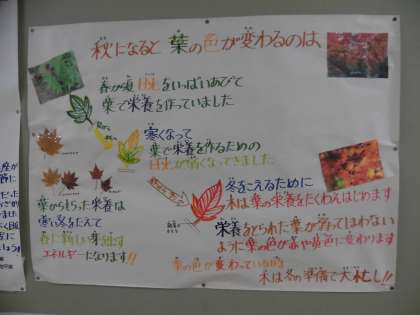 秋になると葉の色が変わるのは
春から夏 日光をいっぱいあびて
葉で栄養を作っていました
寒くなって
葉で栄養を作るための
日光が弱くなってきました
冬をこえるために
木は葉の栄養をたくわえはじめます
栄養をとられた葉が弱ってしまわない
ように葉の色が赤や黄色に変わります
葉からもらった栄養は
寒い冬をたえて
春に新しい芽を出す
エネルギーになります!!
葉の色が変わっている時
木は冬の準備で大忙し!!